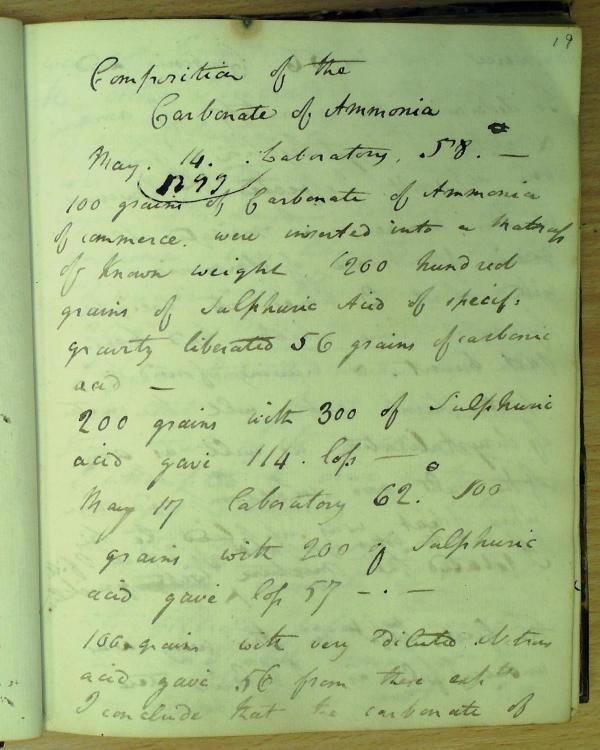 19
Composition of the
Carbonate of Ammonia
May. 14. Laboratory. 58.° —
1799
100 grains of Carbonate of Ammonia
of commerce. were inserted into a Matrass
of known weight. 200 hundred
grains of Sulphuric Acid of specif:
gravity liberated 56 grains of carbonic
acid —
200 grains with 300 of Sulphuric
acid gave 114. loss —
May 17 Laboratory 62.° 100
grains with 200 of Sulphuric
acid gave loss 57 — . —
100 grains with very Diluted Nitrous
acid gave 56 from these expts
I conclude that the carbonate of